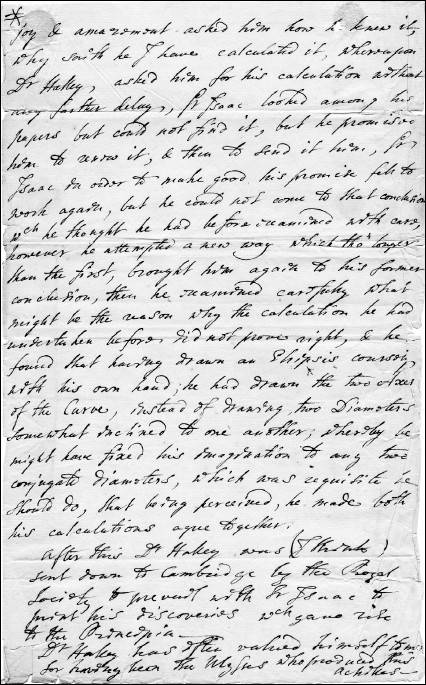 *
Joy & amazement asked him how he knew it,
why saith he I have calculated it, whereupon
Dr Halley, asked him for his calculation without
any farther delay, Sr Isaac looked among his
papers but could not find it, but he promised
him to renew it, & then to send it him, Sr
Isaac in order to make good his promise fell to
work again, but he could not come to that conclusion
wch he thought he had before examined with care,
however he attempted a new way which tho' longer
than the first, brought him again to his former
conclusion, then he examined carefully what
might be the reason why the calculation he had
undertaken before did not prove right, & he
found that having drawn an Elipsis coursely
with his own hand, he had drawn the two axes
of the Curve, instead of drawing two Diameters
somewhat inclined to one another, whereby he
might have fixed his imagination to any two
conjugate diameters, which was requisite he
should do, that being perceived, he made both
his calculations agree together.
After this Dr Halley was (I think)
sent down to Cambridge by the Royal
Society to prevail with Sr Isaac to
print his discoveries wch gave rise
to the Principia
Dr Halley has often valued himself to me
for having been the Ulysses who produced this
Achilles